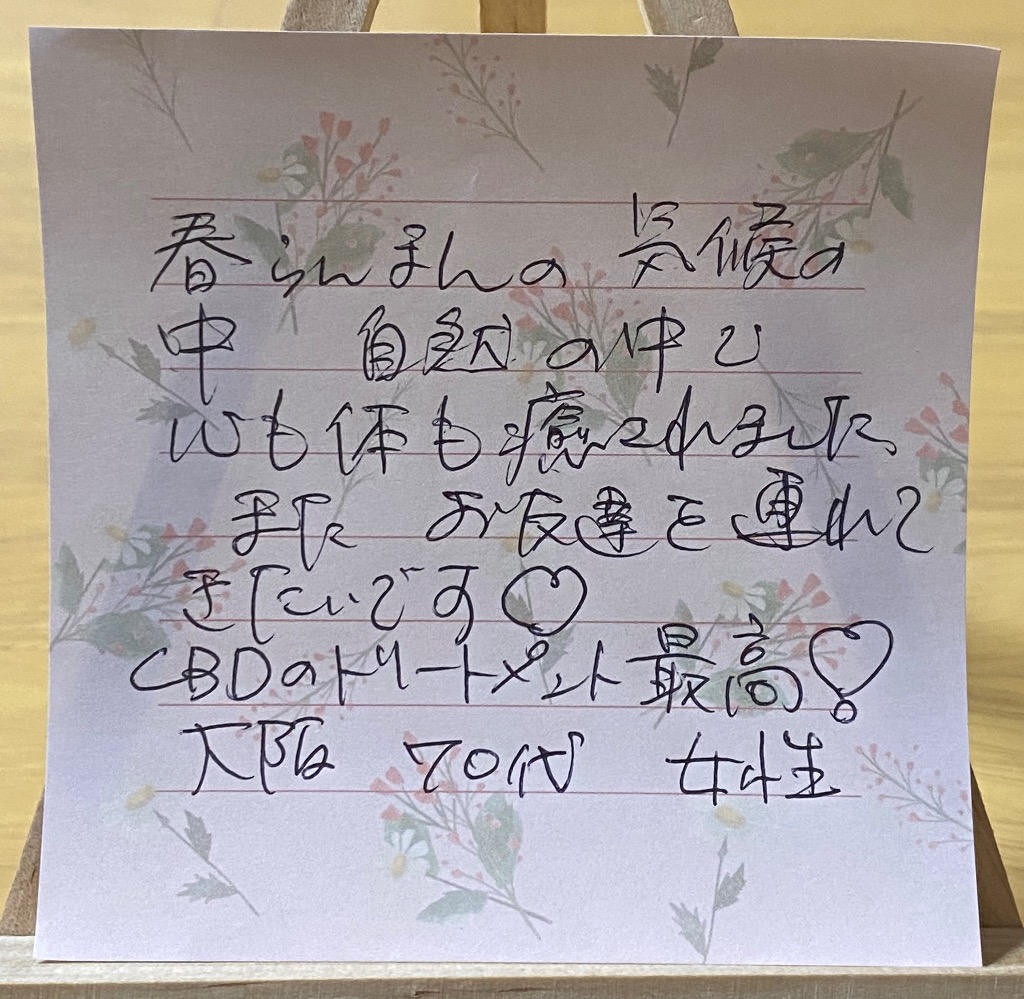 春らんまんの 気候の
中 自然の中で
心も体も癒されました、
また お友達を連れて
きたいです♡
CBDのトリートメント最高♡
大阪 70代 女性